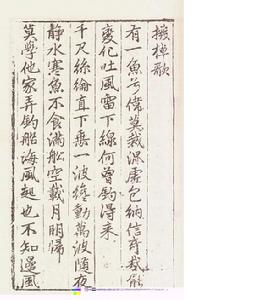 撥棹歌
有一魚兮偉莫裁混虛包納信奇哉能
變化吐風雷下線何曾釣得来
千尺絲綸直下垂一波纔動萬波随夜
静水寒魚不食滿舩空載月明歸
莫學他家弄釣船海風起也不知邊風